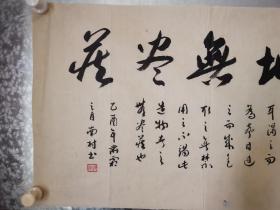 無盡藏
耳得之而
為聲目遇
之而成色
取之無禁
用之不竭是
造物者之
無盡藏也
乙酉年
之月 村书